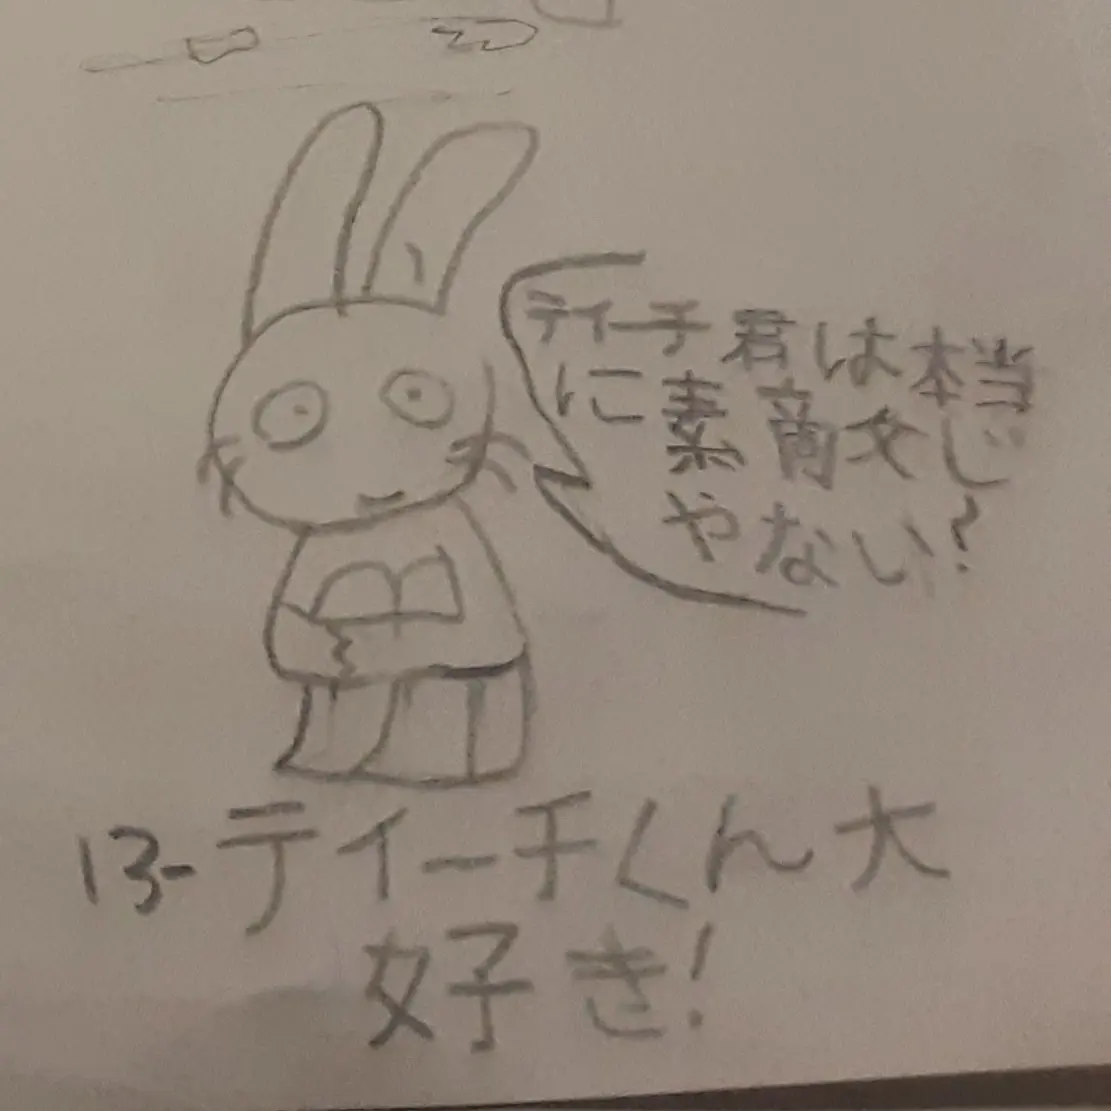 ティーチ君は本当
に素敵じ
ゃない?
13-ティーチくん大
好き!